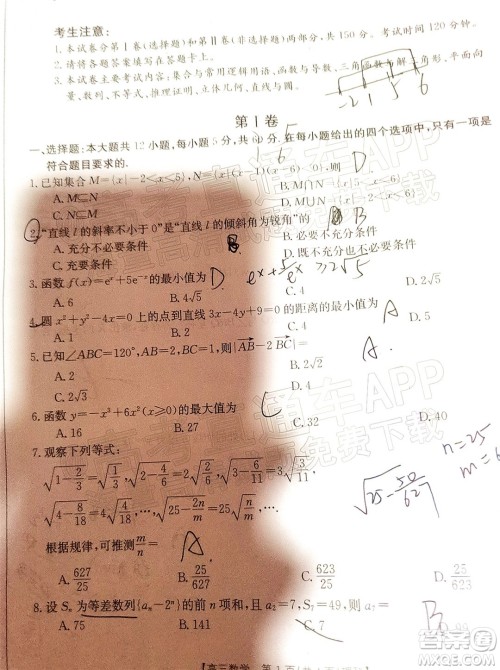 考生注意:
1.本试卷分第Ⅰ卷(选择题)和第Ⅱ卷(非选择题)两部分,共150分。考试时间120分钟。
2.请将各题答案填写在答题卡上。
3.本试卷主要考试内容:集合与常用逻辑用语,函数与导数,三角函数与解三角形,平面向
量,数列,不等式,推理证明,立体几何,直线与圆。
-2 1 5 6
第Ⅰ卷
一、选择题:本大题共12小题,每小题5分,共60分.在每小题给出的四个选项中,只有一项是
符合题目要求的.
1.已知集合M={x|-2<x<5},N={x|(x-1)(x-6)<0},则 D
A.M⊆N
C.N⊆M
2.“直线l的斜率不小于0”是“直线l的倾斜角为锐角”的 B
A.充分不必要条件
B.必要不充分条件
C.充要条件
D.既不充分也不必要条件
3.函数f(x)=eˣ+5e⁻ˣ的最小值为 D
eˣ+5/eˣ≥2√5
A.6 B.4√5 C.4 D.2√5
4.圆x²+y²-4x=0上的点到直线3x-4y+9=0的距离的最小值为 A
A.1 B.2
5.已知∠ABC=120°,AB=2,BC=1,则|AB-2BC|= A.
A.2 B.2√2
C.2√3
6.函数y=-x³+6x²(x⩾0)的最大值为 C
A.16 B.27 C.32 D.40
7.观察下列等式:
√(1-2/3)=√(1/3),√(2-4/6)=2√(2/6),√(3-6/11)=3√(3/11),
√(4-8/18)=4√(4/18),…,√(25-2n/m)=25√(n/m),
n=25
√(25-50/627)
根据规律,可推测m/n= A
A.627/25 B.25/627 C.623/25 D.25/623
8.设Sₙ为等差数列{aₙ-2ⁿ}的前n项和,且a₂=7,S₇=49,则a₇= B
A.75 B.141 C.7